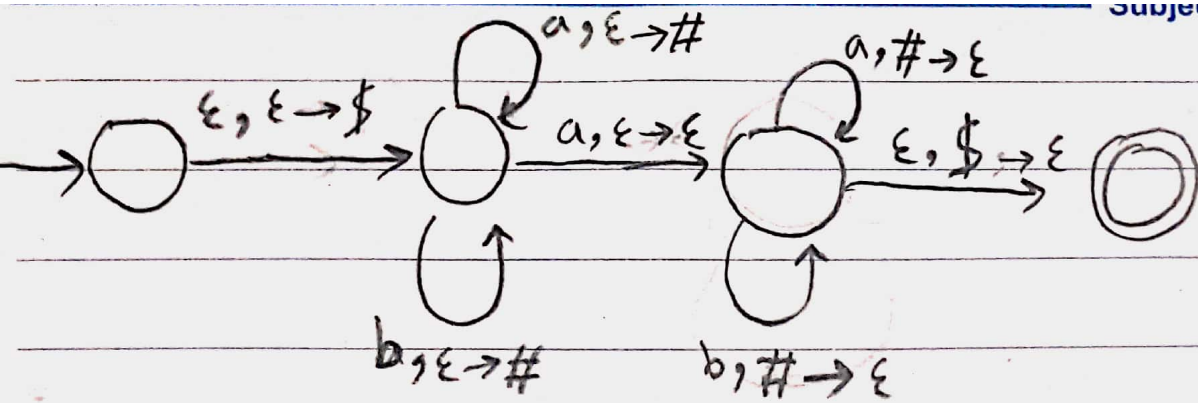 Subje
a, ε → #
a, # → ε
ε, ε → $
a, ε → ε
ε, $ → ε
b, ε → #
b, # → ε